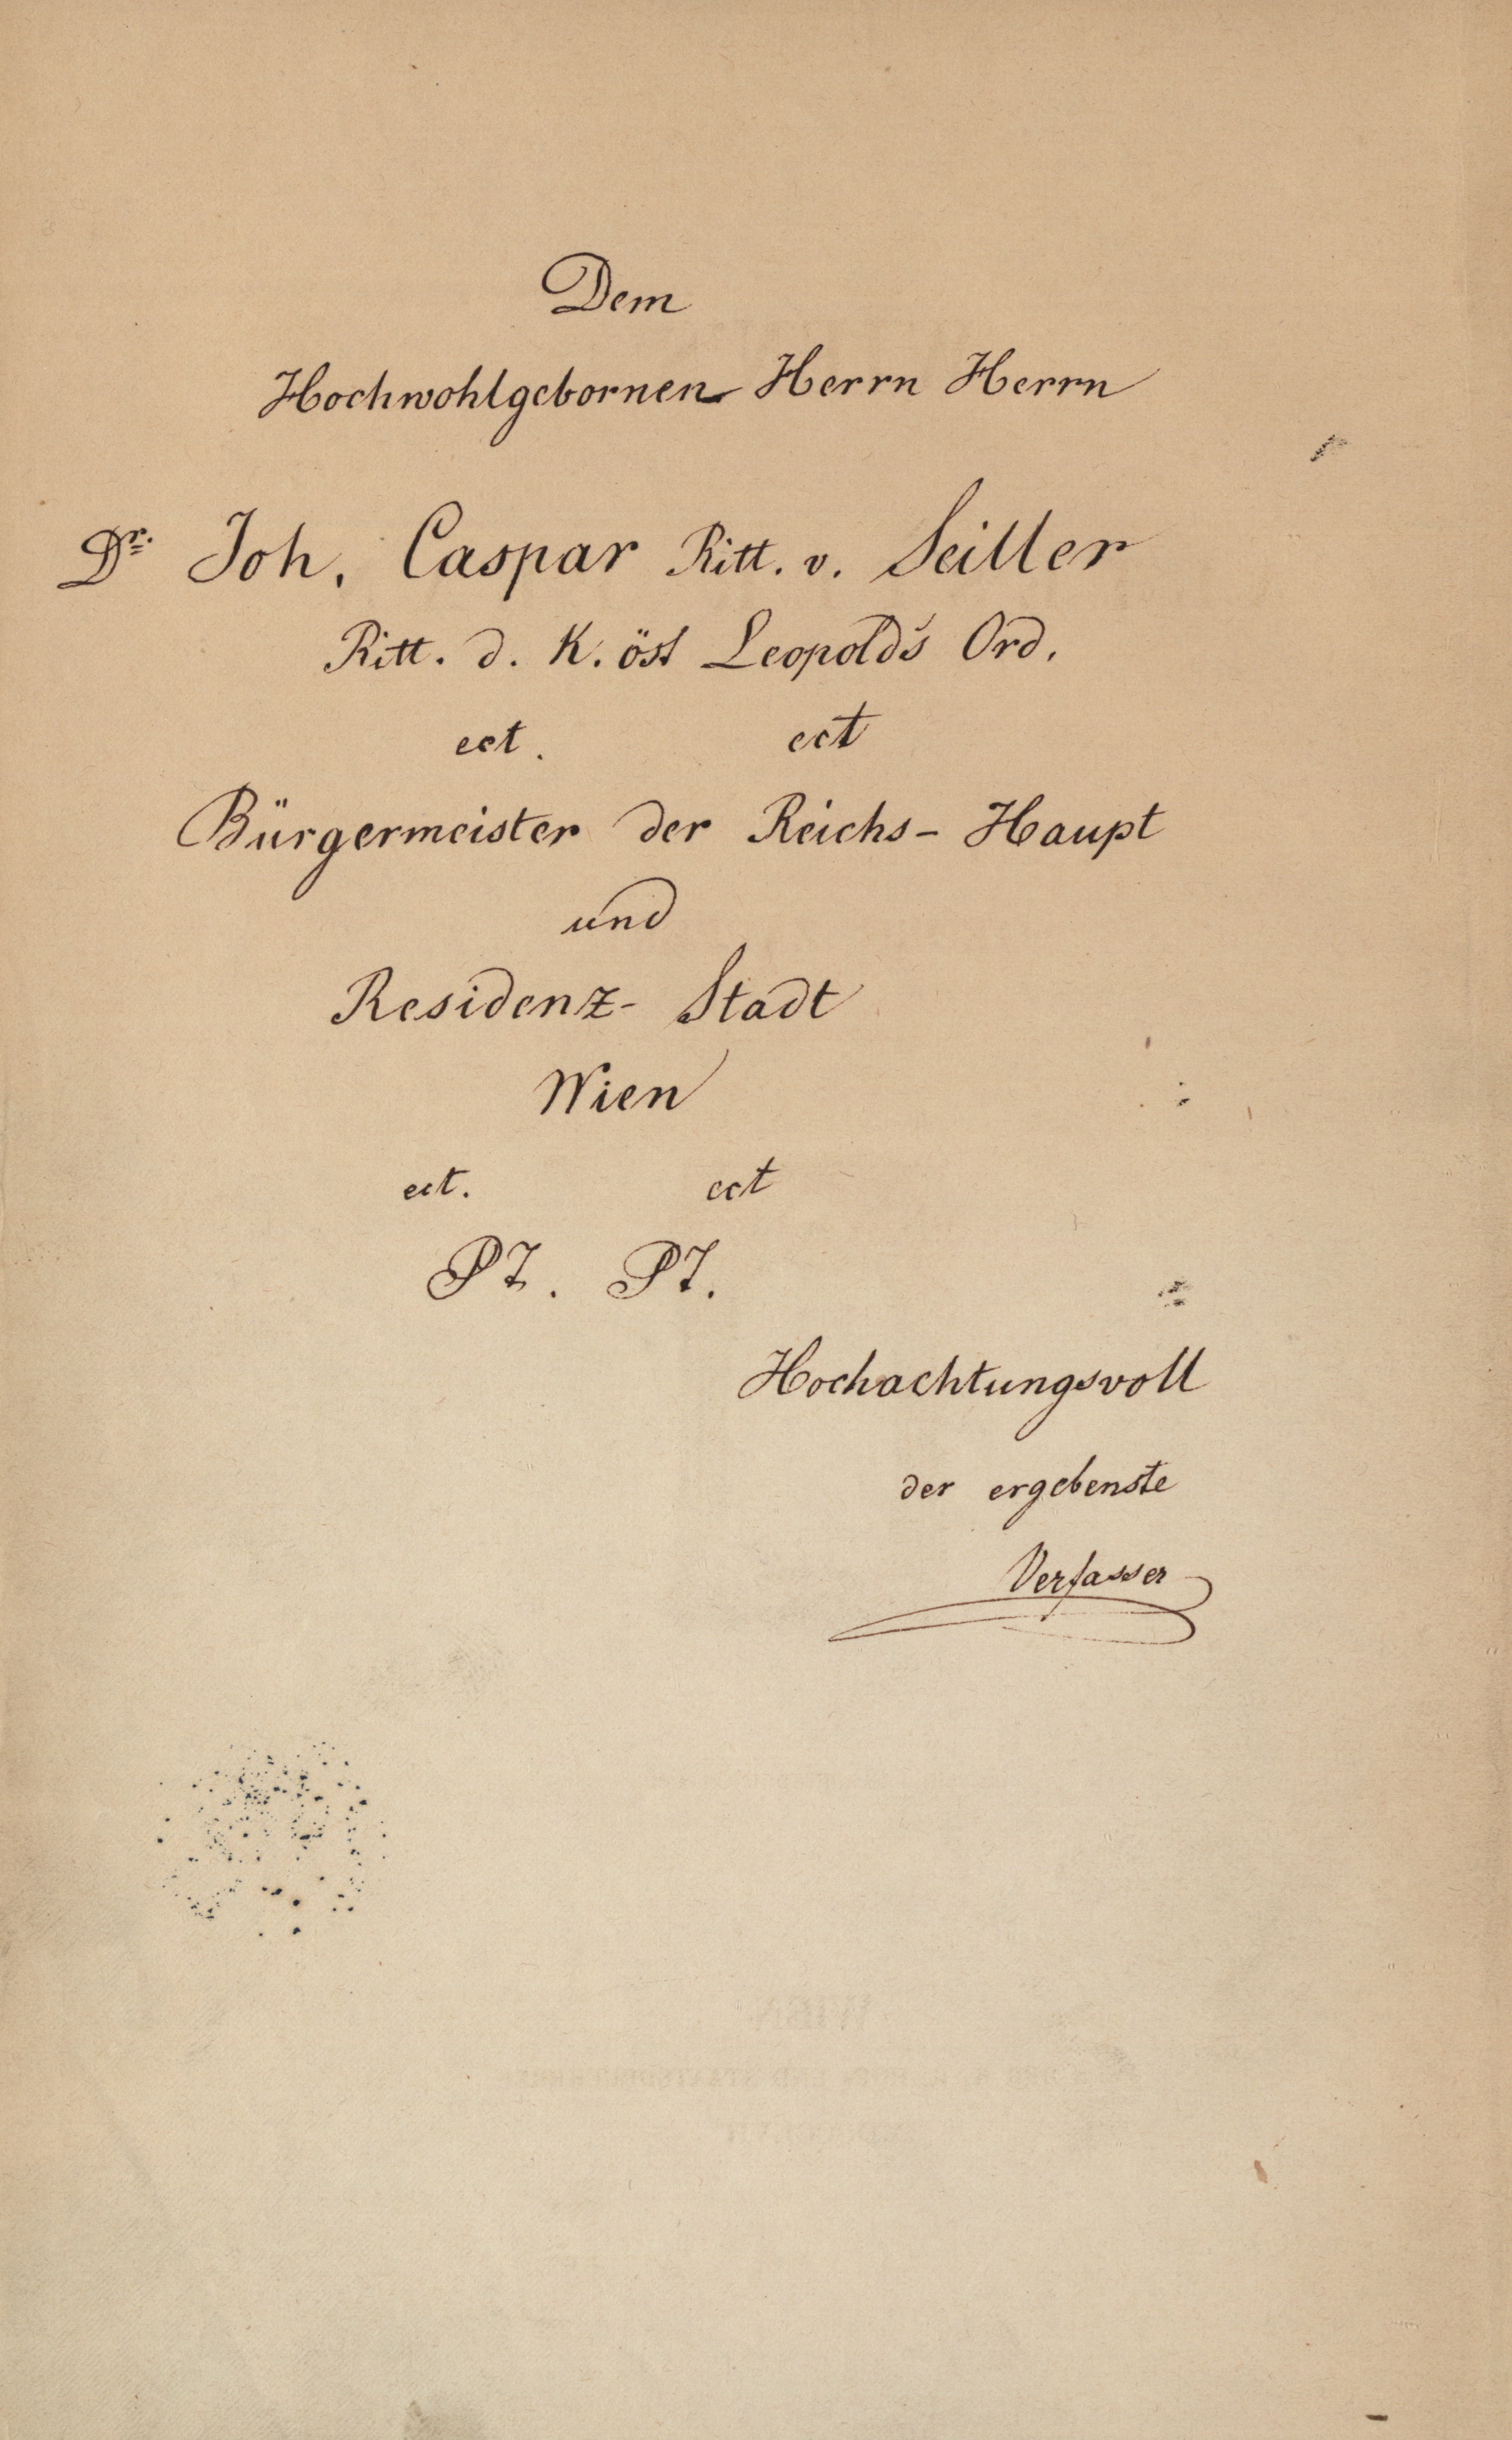 Dem
Hochwohlgebornen Herrn Herrn
Dr. Joh. Caspar Ritt. v. Seiller
Ritt. d. K. öst Leopold's Ord.
ect. ect
Bürgermeister der Reichs- Haupt
und
Residenz- Stadt
Wien
ect. ect
PT. PT.
Hochachtungsvoll
der ergebenste
Verfasser